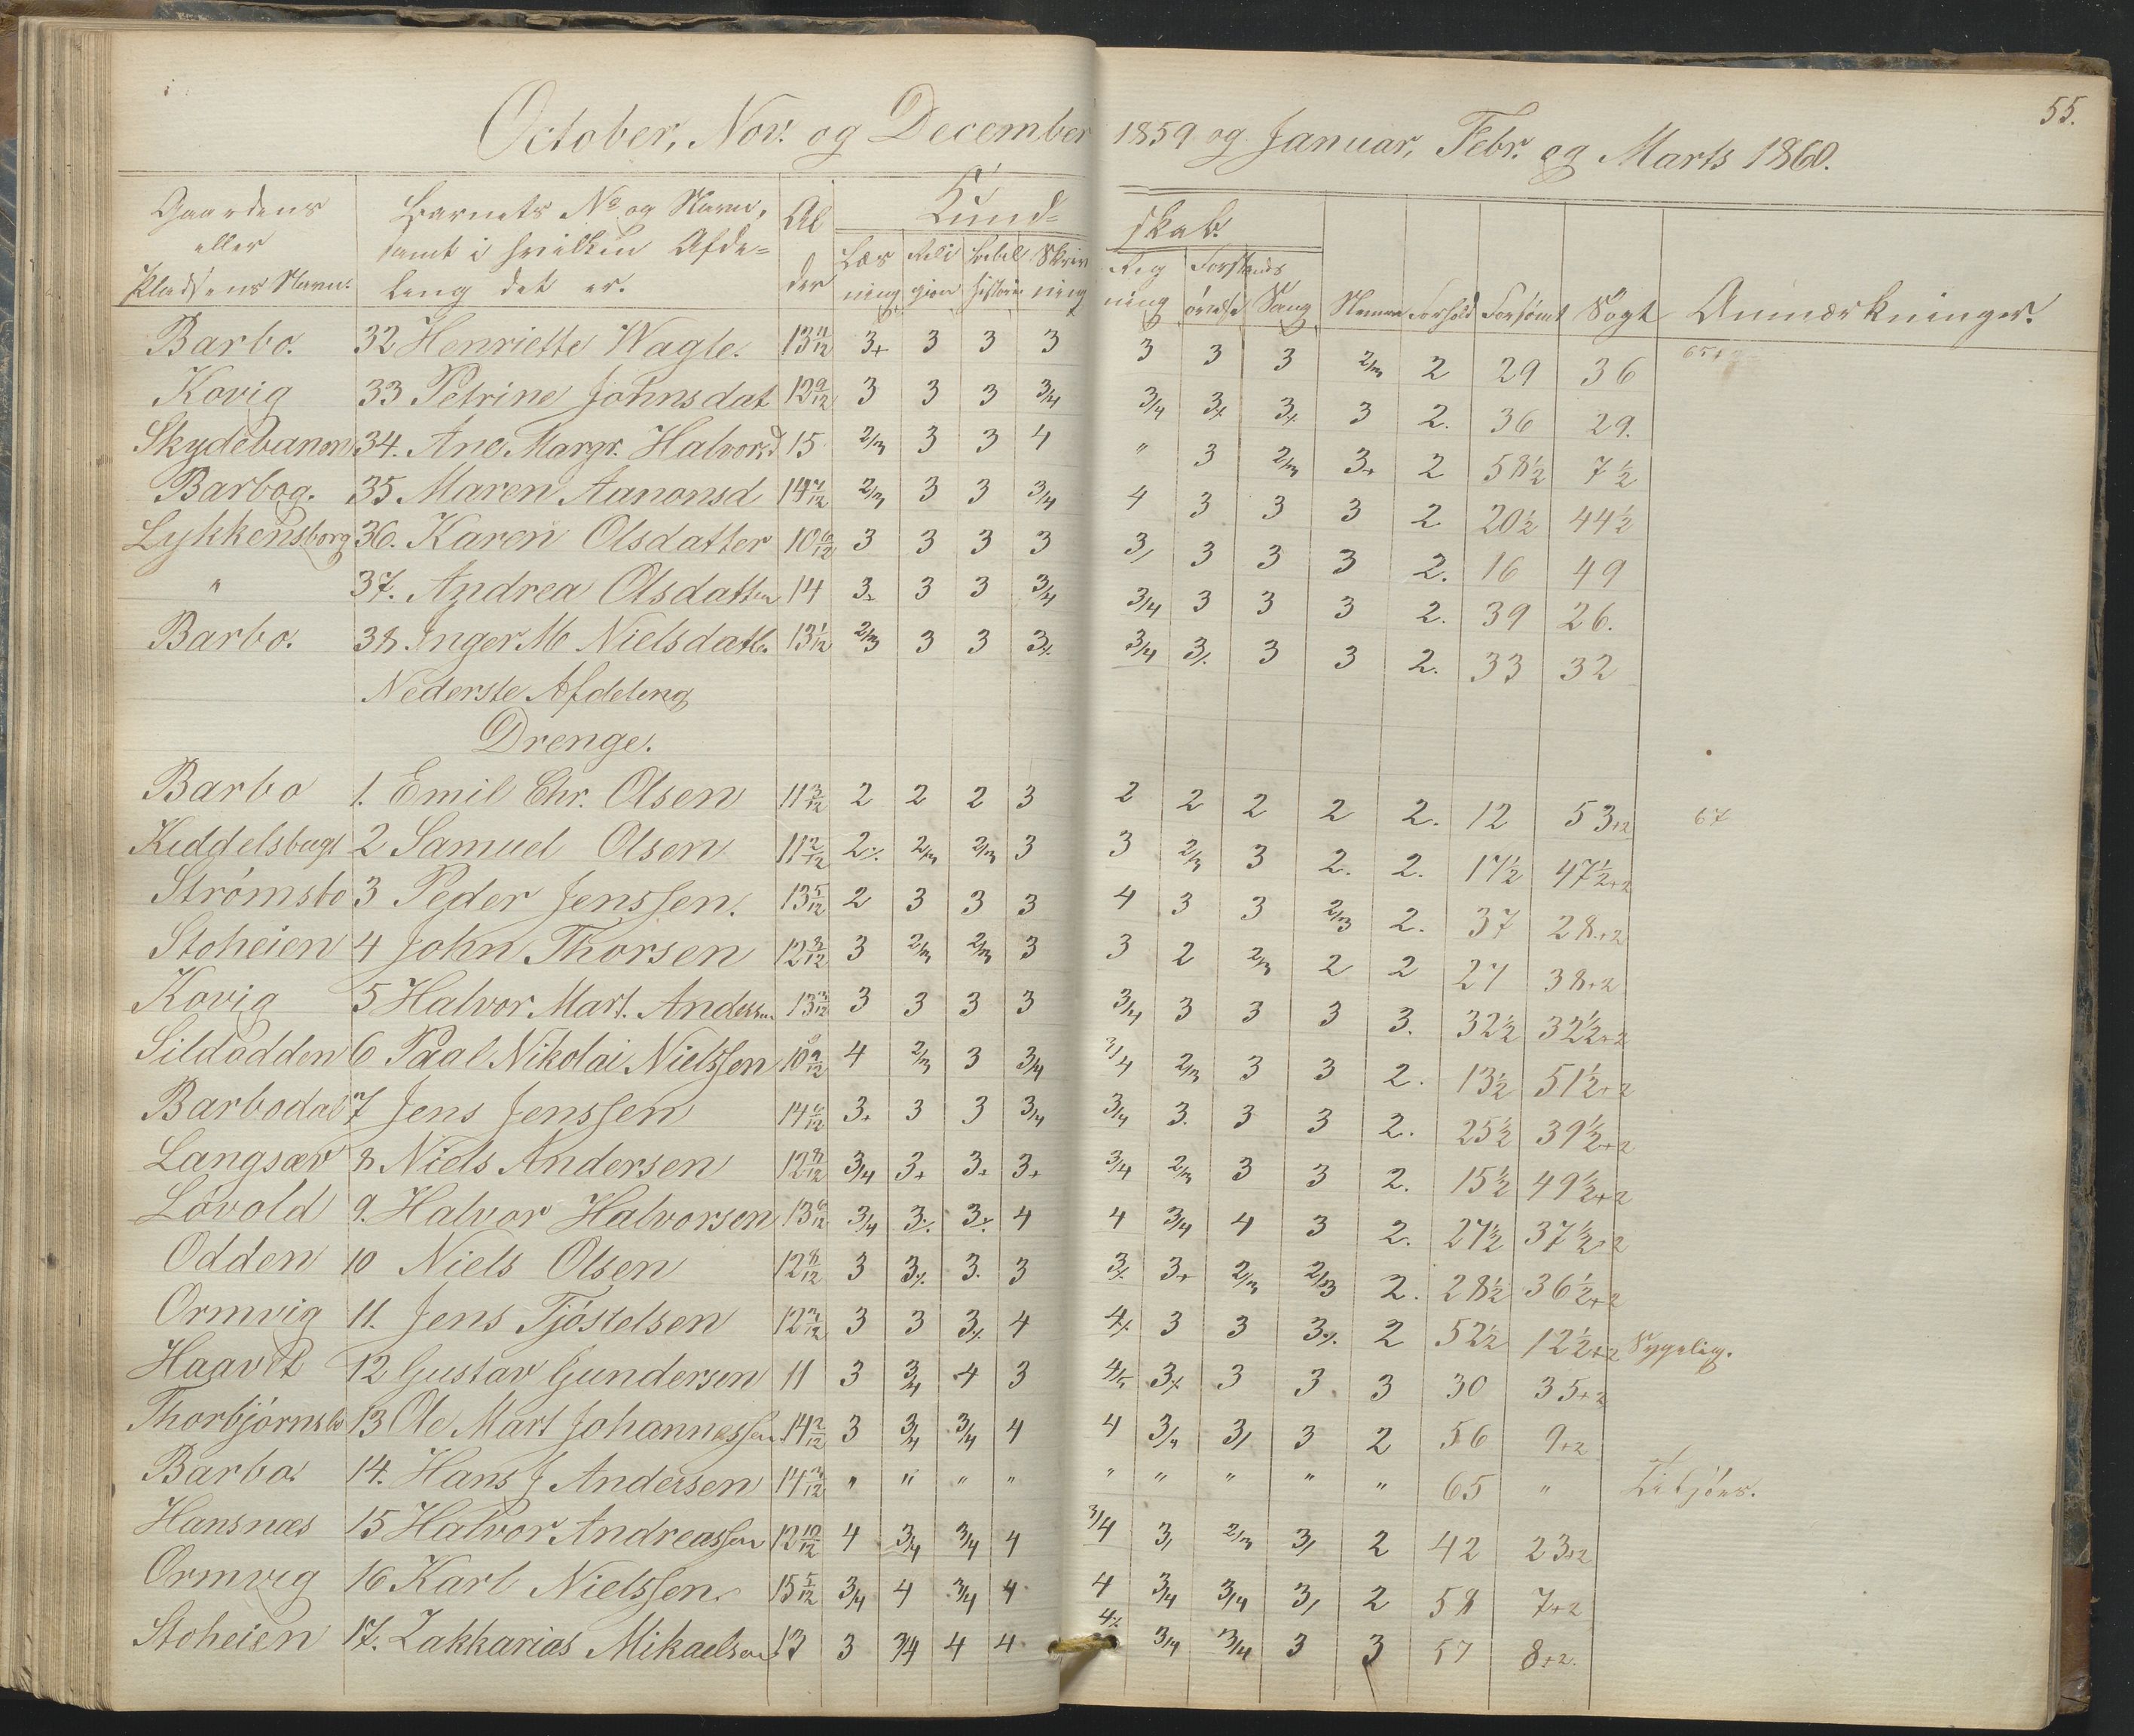 55.
October, Nov. og December 1859 og Januar, Febr. og Marts 1860.
Gaardens eller Pladsens Navn. Barnets No og Navn, samt i hvilken Afdeling det er. Alder Kundskab. Nemme Forhold Forsömt Sögt Anmærkninger.
Læsning Religion Bibelhistorie Skrivning Regning Forstandsövelse Sang
Barbo. 32 Henriette Wagle. 13 11/12 3+ 3 3 3 3 3 3 2/3 2 29 36
Kovig 33 Petrine Johnsdat 12 9/12 3 3 3 3/4 3/4 3% 3% 3 2. 36 29.
Skydebanen 34. Ane Margr. Halvorsd. 15 2/3 3 3 4 " 3 2/3 3+ 2 58½ 7½
Barbog. 35 Maren Aanonsd 14 7/12 2/3 3 3 3/4 4 3 3 3 2 20½ 44½
Lykkensborg 36. Karen Olsdatter 10 6/12 3 3 3 3 3/ 3 3 3 2. 16 49
" 37. Andrea Olsdatter 14 3+ 3 3 3/4 3/4 3 3 3 2. 39 26.
Barbo. 38. Inger M Nielsdatt. 13 1/12 2/3 3 3 3% 3/4 3% 3 3 2. 33 32
Nederste Afdeling
Drenge.
Barbo 1. Emil Chr. Olsen 11 3/12 2 2 2 3 2 2 2 2 2. 12 53+2 67
Kiddelsbugt 2 Samuel Olsen 11 2/12 2% 2/3 2/3 3 3 2/3 3 2. 2. 17½ 47½+2
Strömsbo 3 Peder Jenssen. 13 5/12 2 3 3 3 4 3 3 2/3 2. 37 28+2
Stoheien 4 John Thorsen 12 3/12 3 2/3 2/3 3 3 2 2/3 2 2 27 38+2
Kovig 5 Halvor Mart. Anderssen 13 3/12 3 3 3 3 3/4 3 3 3 3. 32½ 32½+2
Sildodden 6 Paal Nikolai Nielssen 10 9/12 4 2/3 3 3/4 3/4 2/3 3 3 2. 13½ 51½+2
Barbodal 7 Jens Jenssen 14 6/12 3+ 3 3 3/4 3/4 3. 3 3 2. 25½ 39½+2
Langsæv 8 Niels Andersen 12 8/12 3/4 3+ 3+ 3+ 3/4 2/3 3 3 2. 15½ 49½+2
Lövold 9. Halvor Halvorsen 13 6/12 3/4 3% 3% 4 4 3/4 4 3 2. 27½ 37½+2
Odden 10 Niels Olsen 12 8/12 3 3% 3. 3 3% 3+ 2/3 2/3 2. 28½ 36½+2
Ormvig 11. Jens Tjöstelsen 12 3/12 3 3 3% 4 4% 3 3 3% 2 52½ 12½+2 Sygelig.
Haavet 12 Gustav Gundersen 11 3 3/4 4 3 4/5 3% 3 3. 3 30 35+2
Thorbjörnsbo 13 Ole Mart Johannessen 14 2/12 3 3/4 3/4 4 4 3/4 3/ 3 2 56 9+2
Barbo. 14. Hans J Andersen 14 3/12 " " " " " " " " " 65 "
Hansnæs 15 Halvor Andreassen 12 10/12 4 3/4 3/4 4 3/4 3/ 2/3 3/ 2 42 23+2
Ormvig 16 Karl Nielssen. 15 5/12 3/4 4 3/4 4 4 3/4 3/4 3/ 2 58 7+2
Stoheien 17. Zakkarias Mikaelsen 13 3 3/4 4 4 4% 3/4 3/4 3 3 57 8+2.